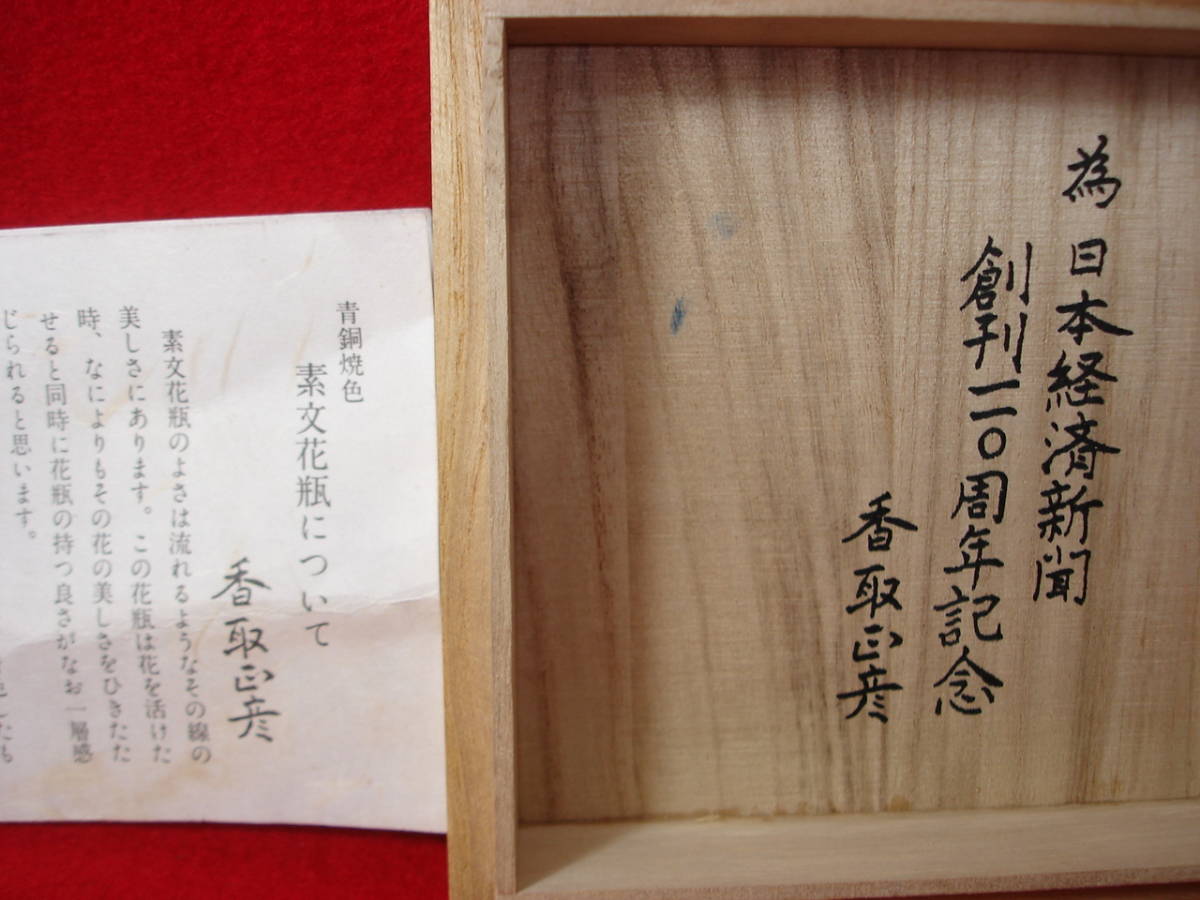 為 日本経済新聞
創刊一一〇周年記念
香取正彦
青銅焼色
素文花瓶について
香取正彦
素文花瓶のよさは流れるようなその線の
美しさにあります。この花瓶は花を活けた
時、なによりもその花の美しさをひきたた
せると同時に花瓶の持つ良さがなお一層感
じられると思います。